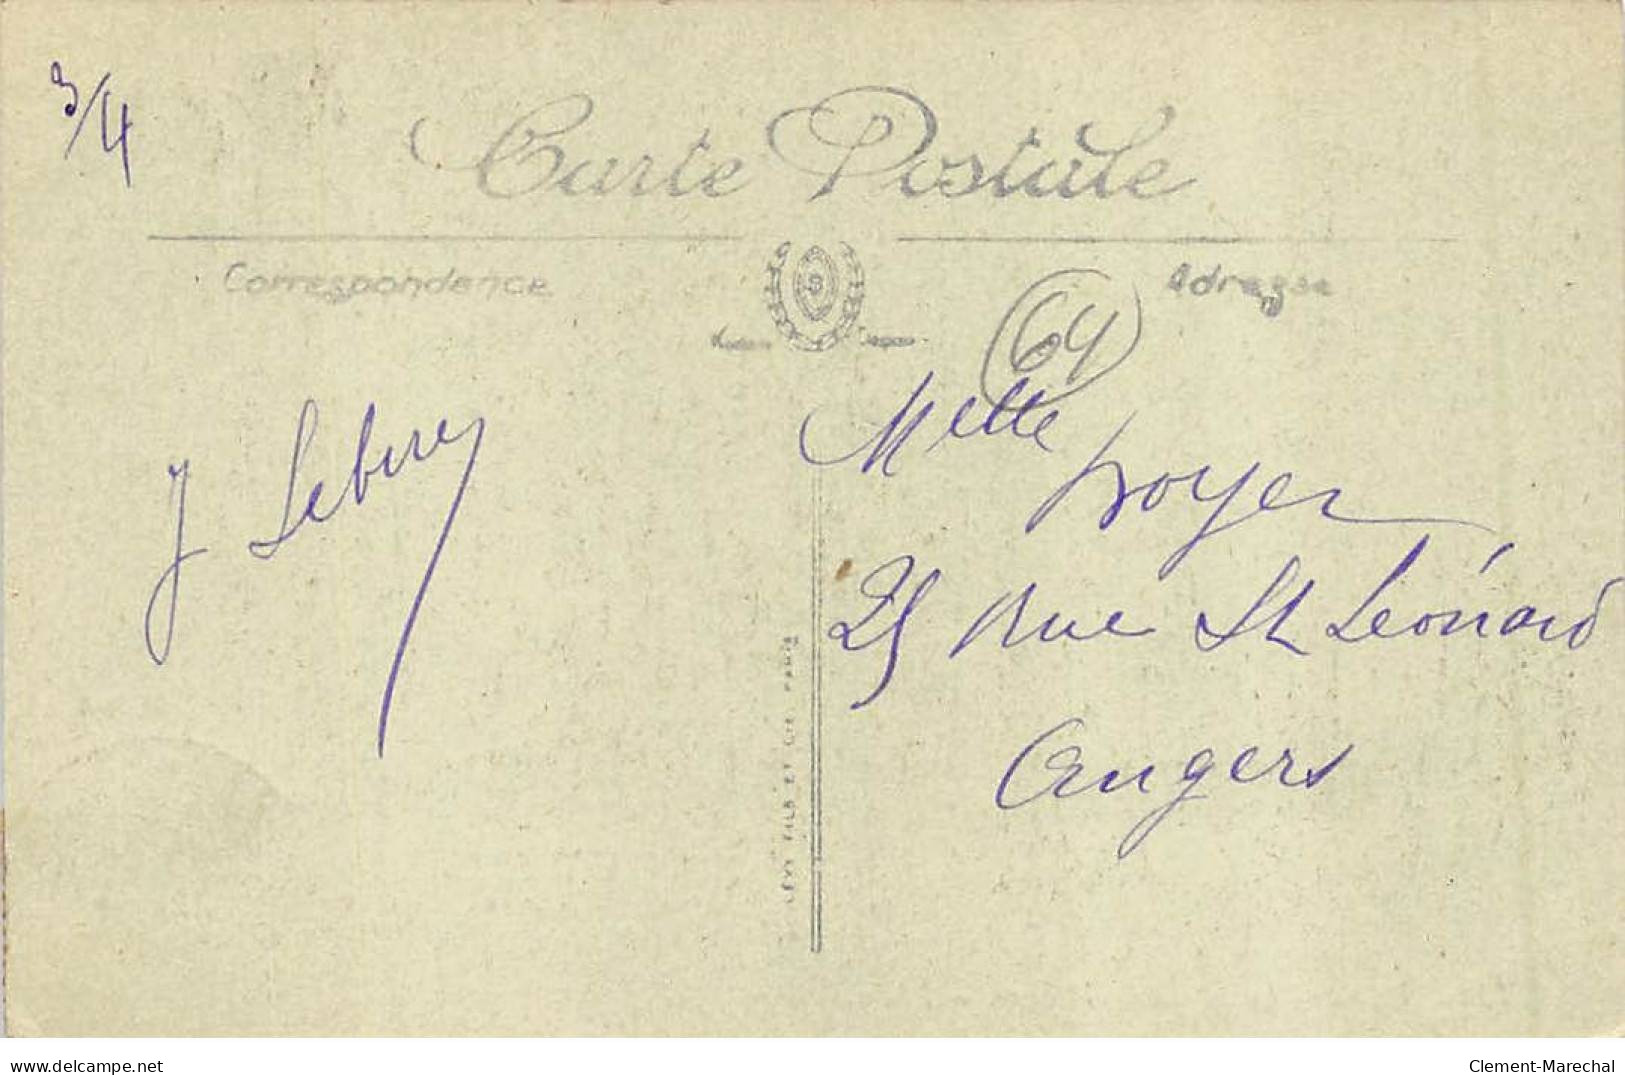 3/4
Carte Postale
Correspondence
Adresse
64
J Lebrey
Melle
Royer
25 Rue St Léonard
Angers
LÉVY FILS ET CIE PARIS
www.delcampe.net
Clement-Marechal